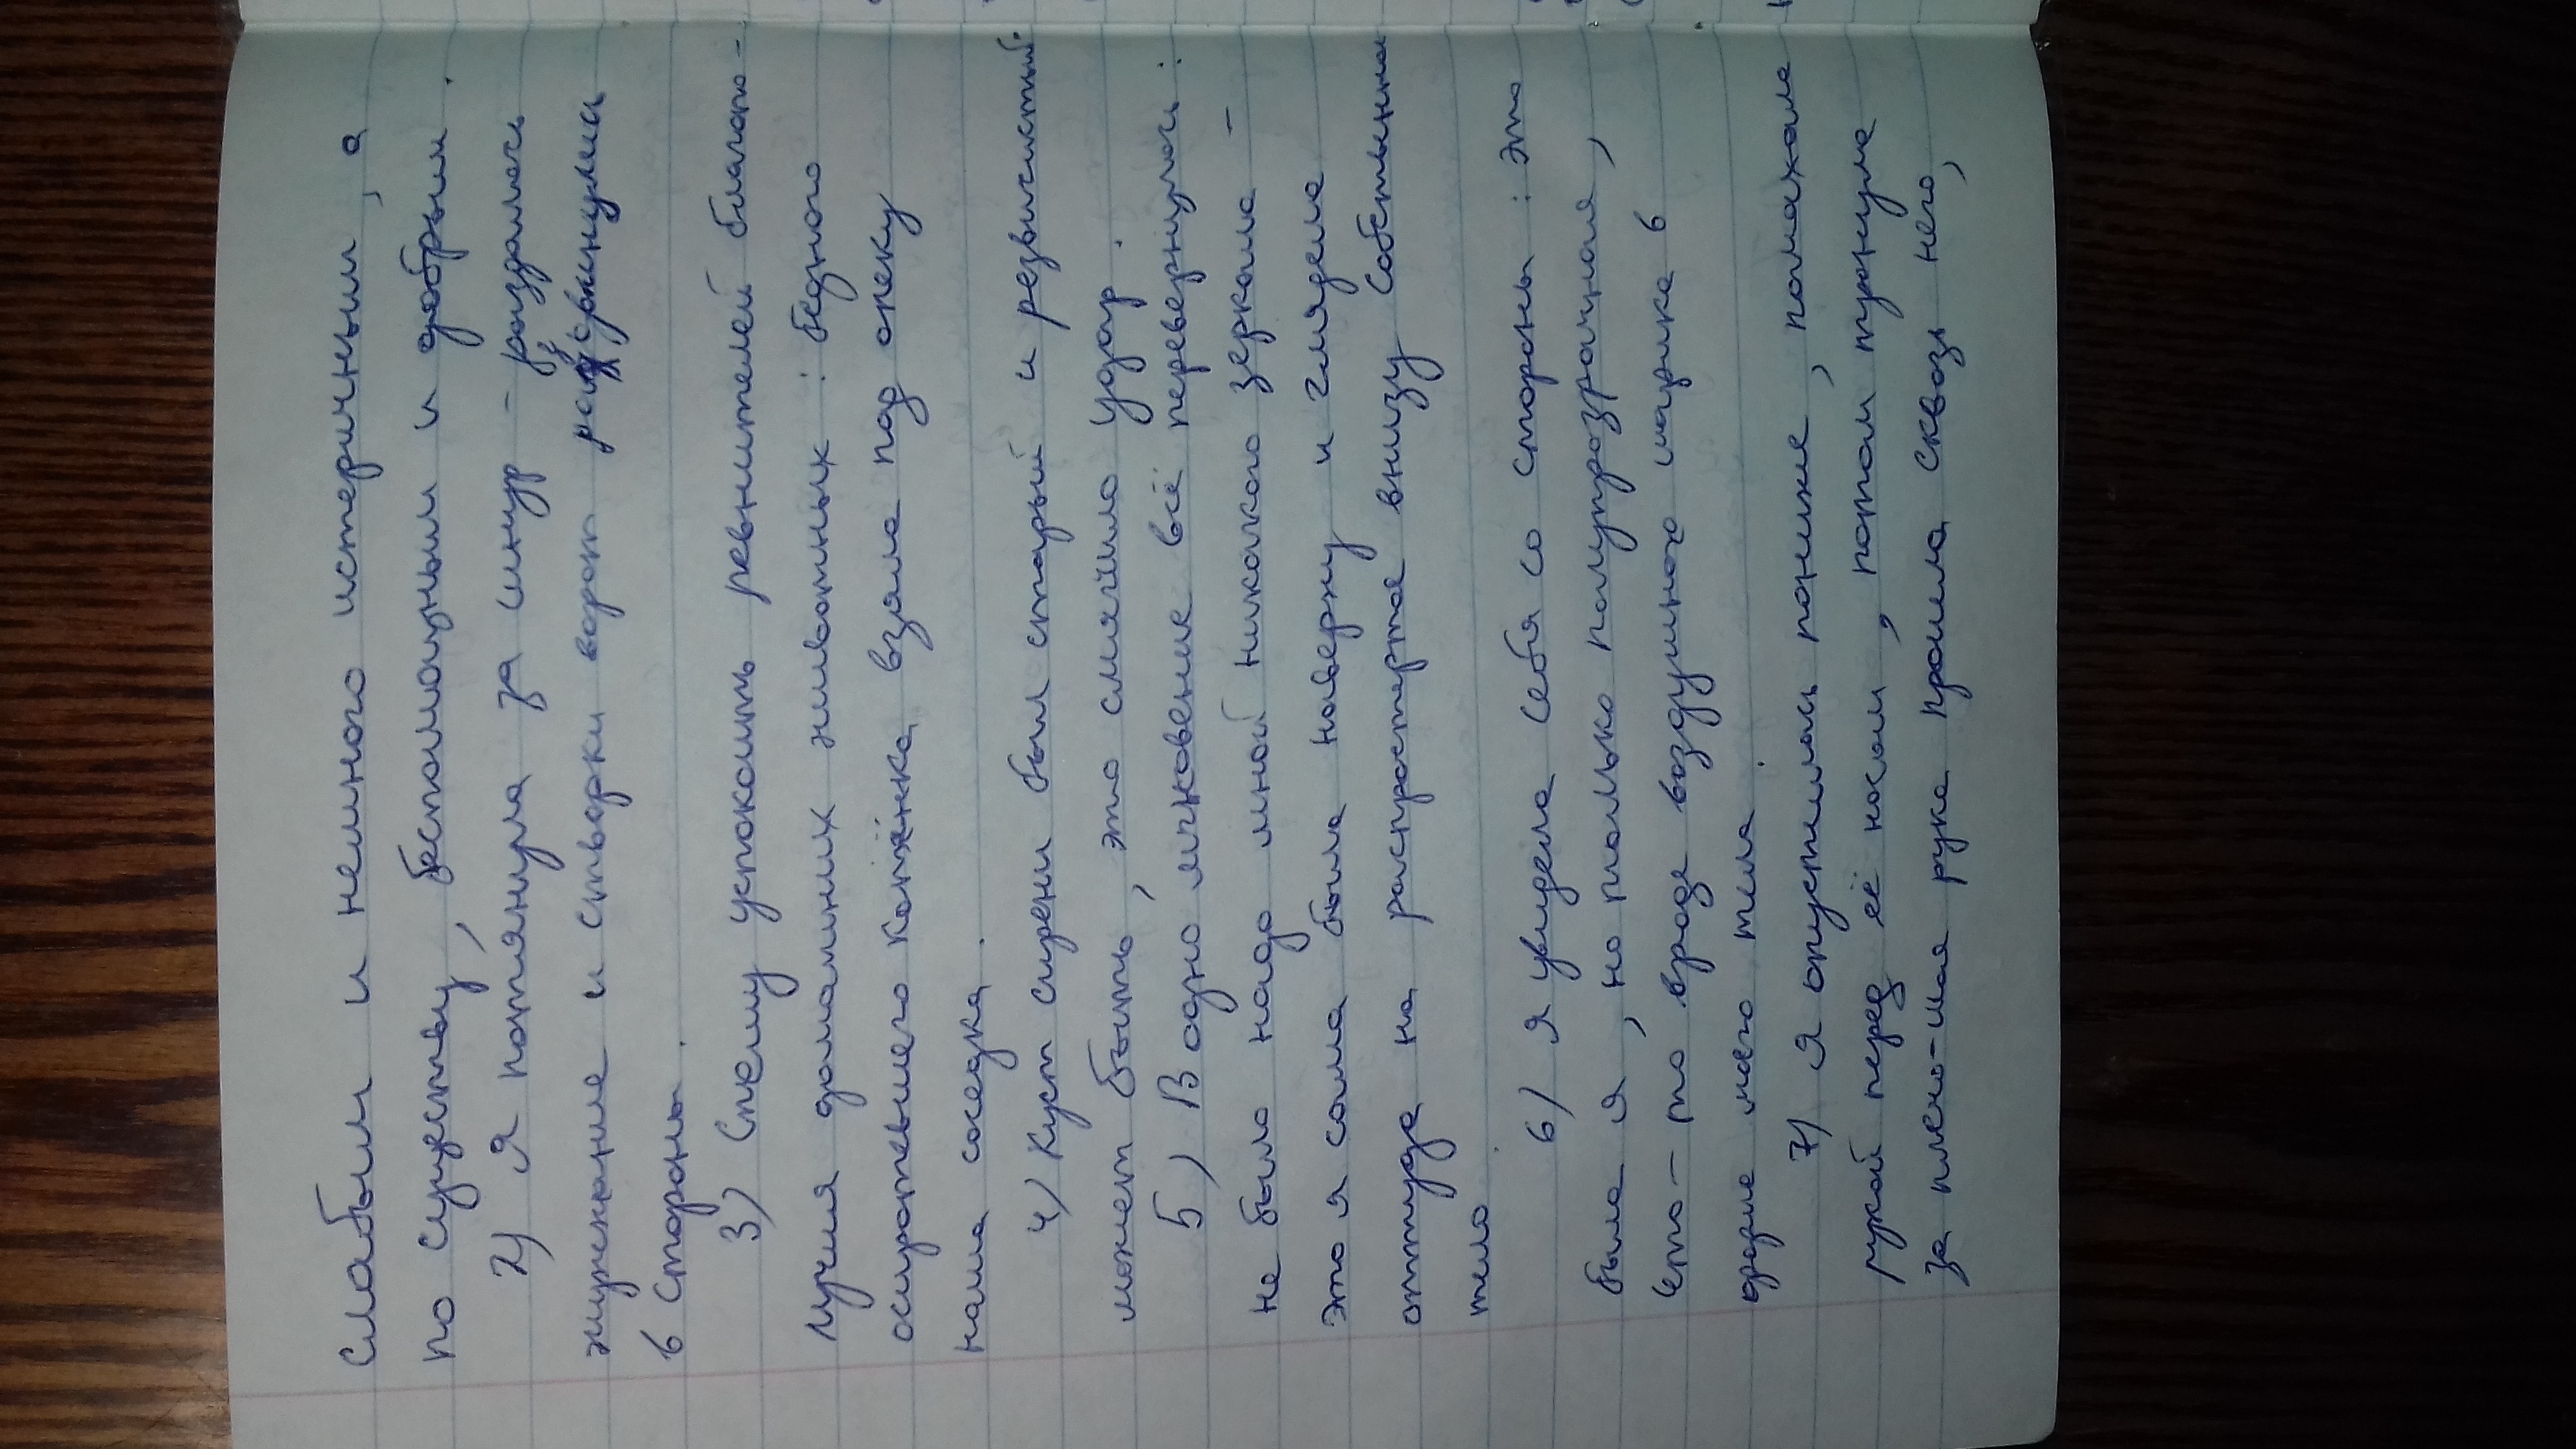 слабым и немного истеричным, а
по существу, беспомощным и добрым.
2) Я потянула за шнур - раздалось
жужжание и створки ворот раздвинулись
в стороны.
3) Спешу успокоить ревнителей благопо-
лучия домашних животных: бедного
осиротевшего котёнка взяла под опеку
наша соседка.
4) Куст сирени был старый и развесистый.
может быть, это смягчило удар.
5) В одно мгновение всё перевернулось:
не было надо мной никакого зеркала -
это я сама была наверху и глядела
оттуда на распростертое внизу собственное
тело.
6) Я увидела себя со стороны: это
была я, но только полупрозрачная,
что-то вроде воздушного шарика в
форме моего тела.
7) Я опустилась пониже, помахала
рукой перед её носом, потом тронула
за плечо-моя рука прошла сквозь него,